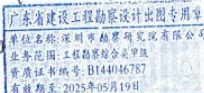 广东省建设工程勘察设计出图专用章
单位名称:深圳市勘察研究院有限公司
业务范围:工程勘察综合类甲级
资质证书编号:B144046787
有效期至:2025年05月19日